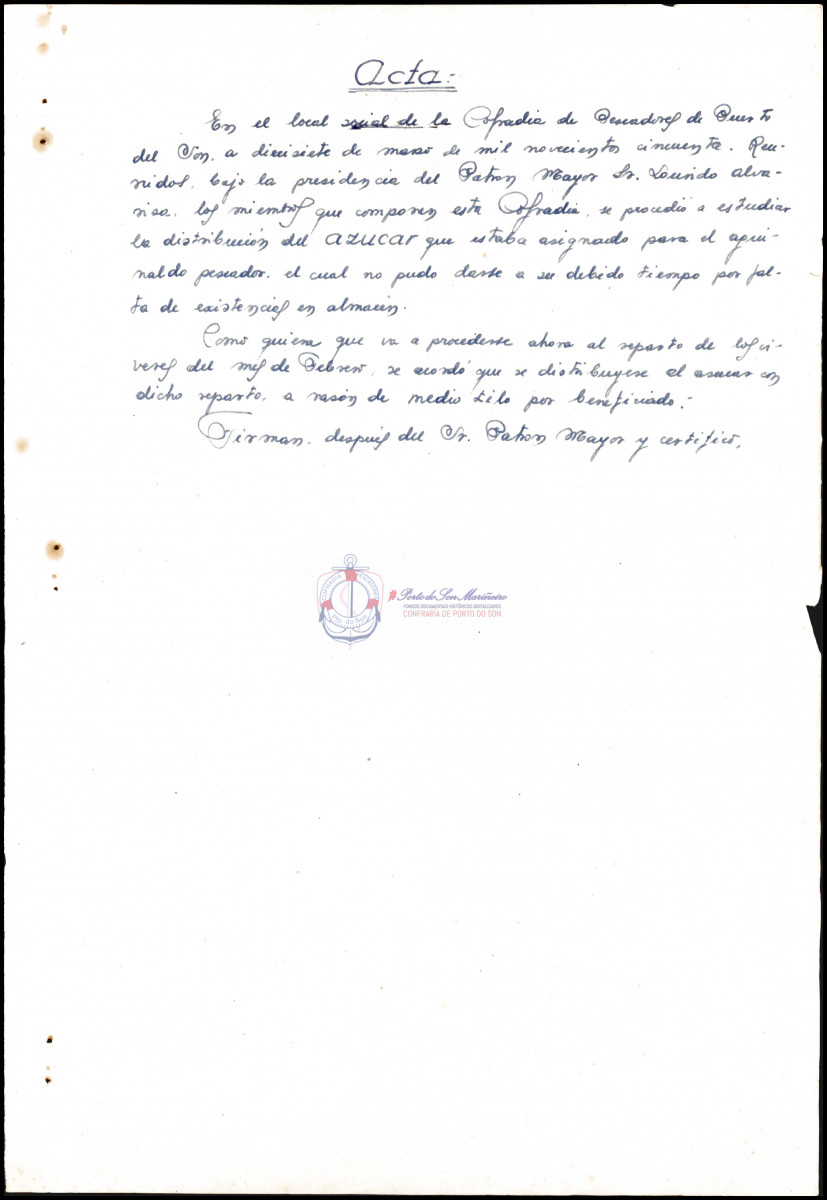 Acta:-
En el local social de la Cofradia de Pescadores de Puerto
del Son, a diecisiete de marzo de mil novecientos cincuenta. Reu-
nidos, bajo la presidencia del Patron Mayor Sr. Lourido Alva-
risa, los miembros que componen esta Cofradia, se procedió a estudiar
la distribución del AZUCAr que estaba asignado para el agui-
naldo pescador, el cual no pudo darse a su debido tiempo por fal-
ta de existencias en almacén.
Como quiera que va a procederse ahora al reparto de los ví-
veres del mes de Febrero, se acordó que se distribuyese el azucar con
dicho reparto, a razón de medio kilo por beneficiado:-
Firman, después del Sr. Patron Mayor y certifico,
CONFRARÍA PESCADORES
Pto. do Son
#Porto do Son Mariñeiro
FONDOS DOCUMENTAIS HISTÓRICOS DIXITALIZADOS
CONFRARÍA DE PORTO DO SON